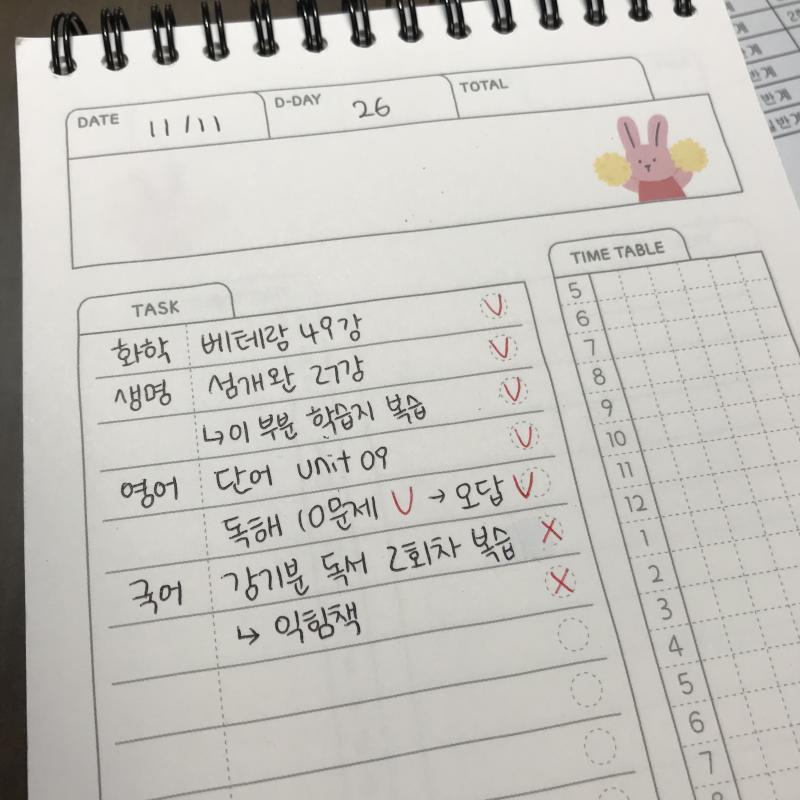 DATE 11/11 D-DAY 26 TOTAL
TASK
화학 베테랑 49강 V
생명 섬개완 27강 V
↳이 부분 학습지 복습 V
영어 단어 unit 09 V
독해 10문제 V → 오답 V
국어 강기분 독서 2회차 복습 X
↳ 익힘책 X
TIME TABLE
5
6
7
8
9
10
11
12
1
2
3
4
5
6
7
8